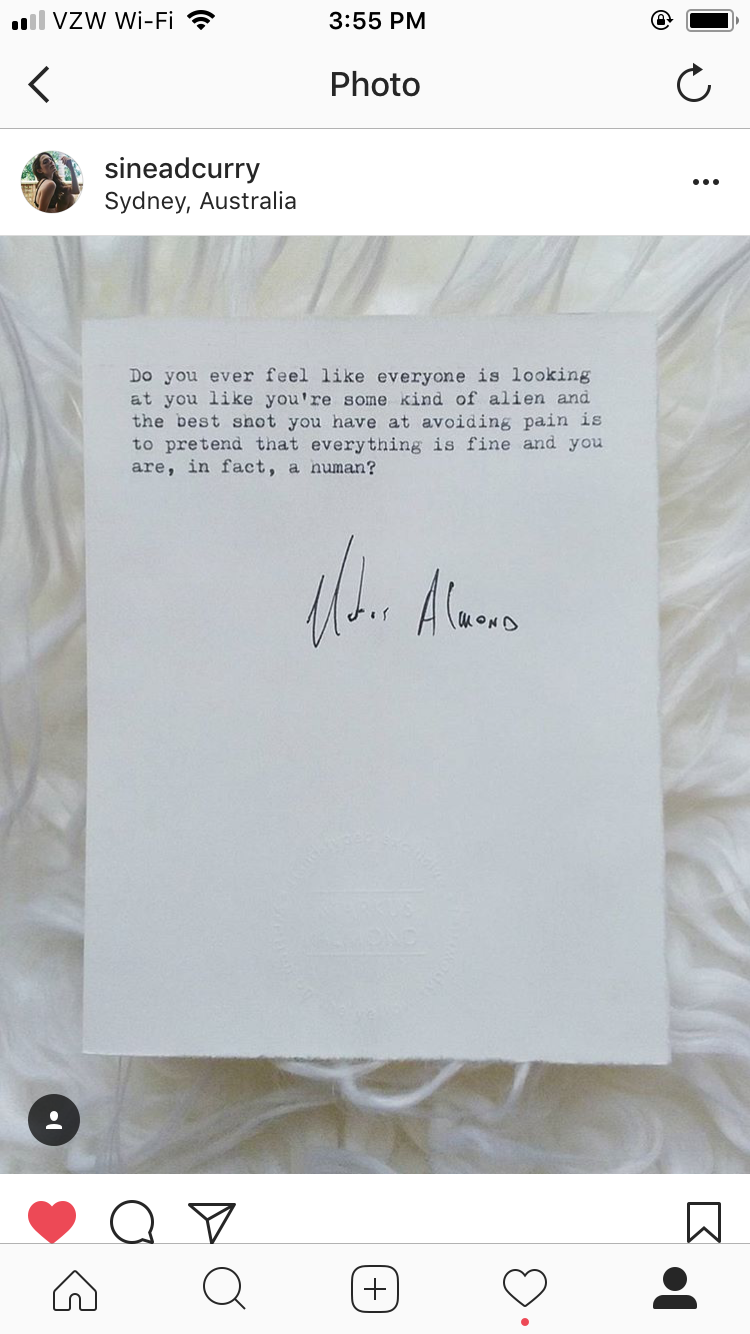 VZW Wi-Fi
3:55 PM
Photo
sineadcurry
Sydney, Australia
Do you ever feel like everyone is looking
at you like you're some kind of alien and
the best shot you have at avoiding pain is
to pretend that everything is fine and you
are, in fact, a human?
Almond